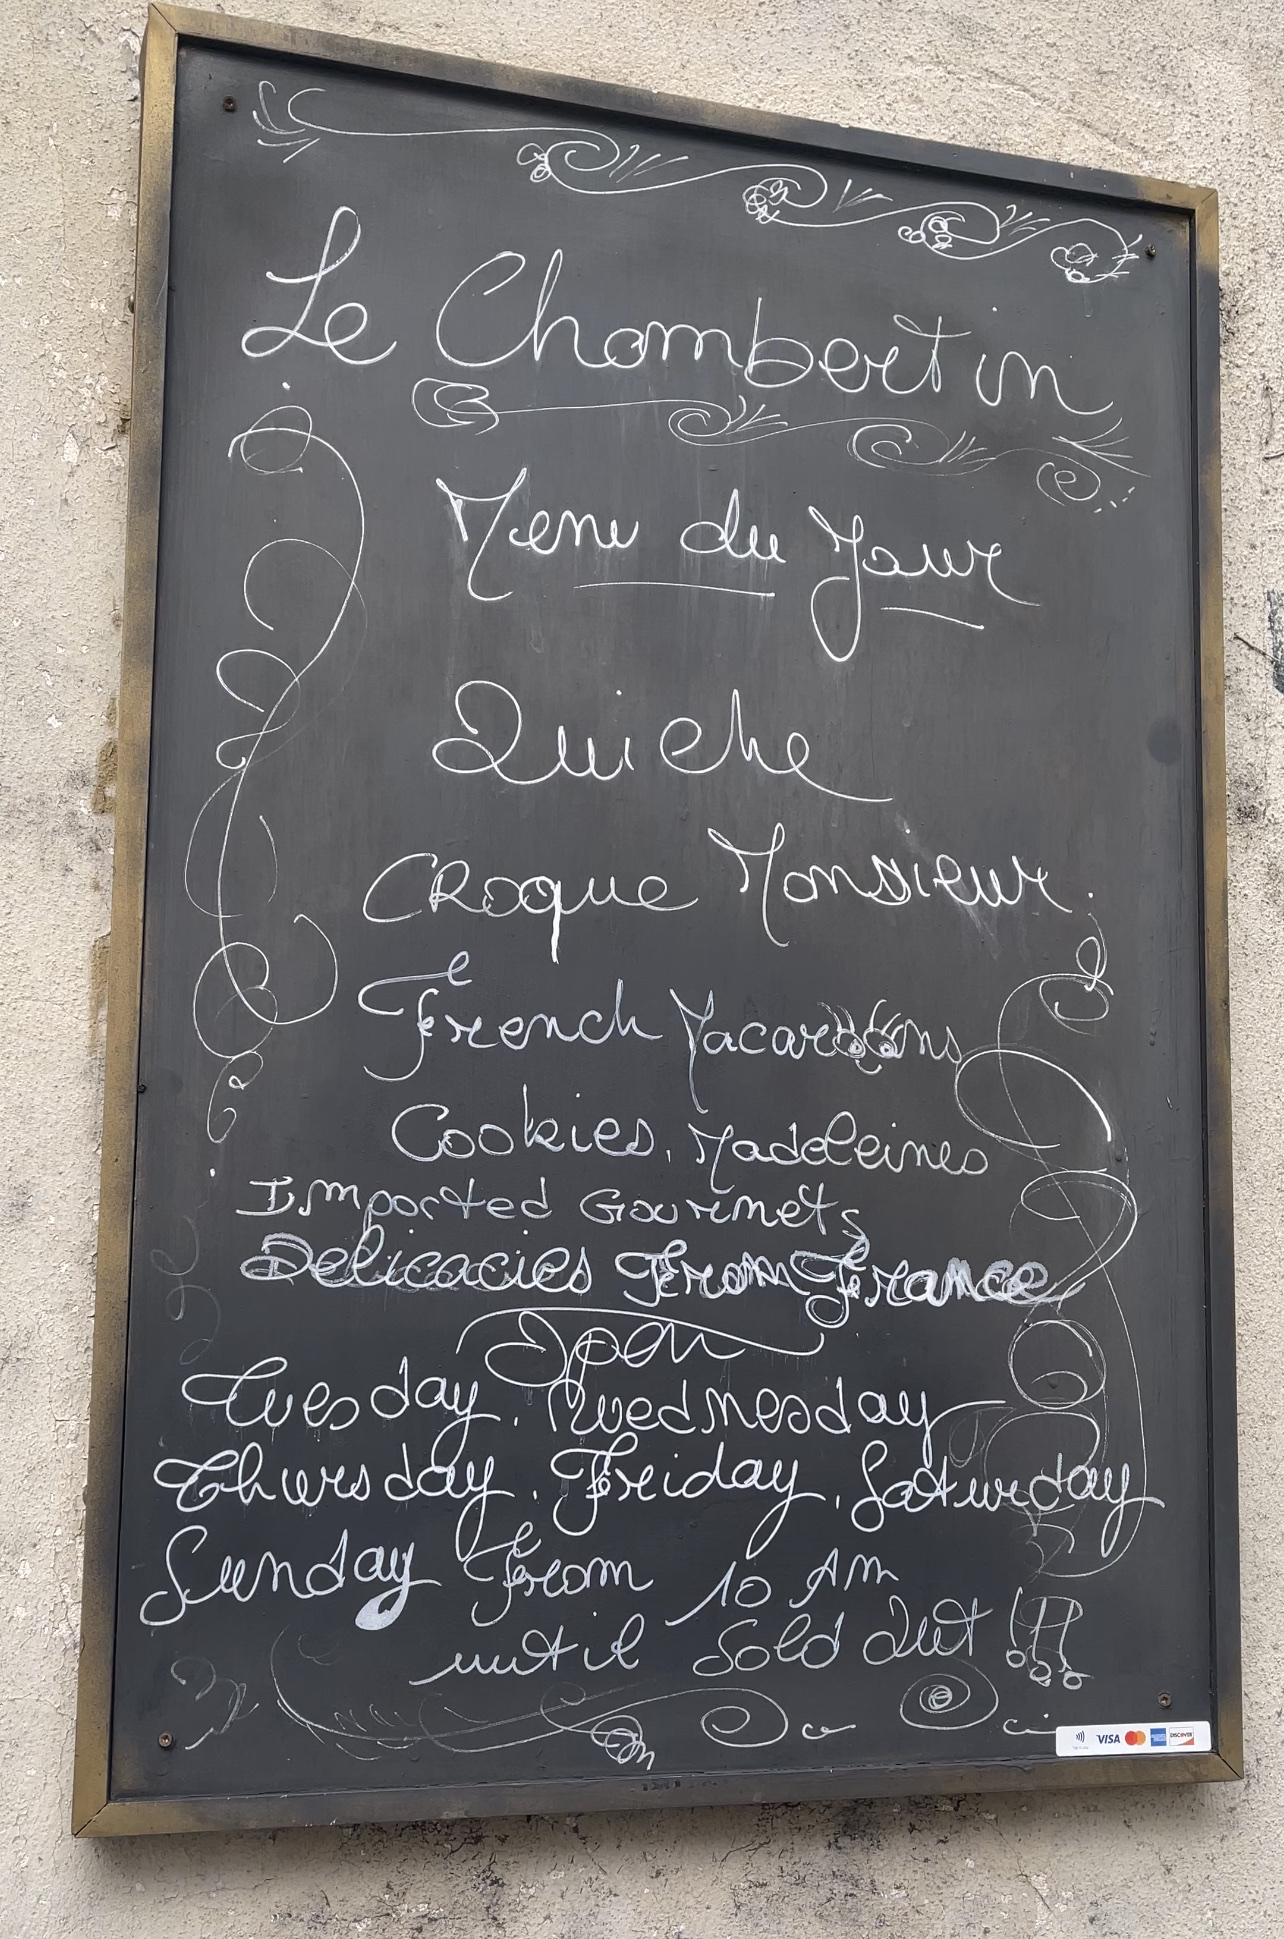 Le Chambertin
Menu du Jour
Quiche
CRoque Monsieur.
French Macaroons
Cookies, Madeleines
Imported Gourmets
Delicacies From France
Open
Tuesday, Wednesday
Thursday, Friday, Saturday
Sunday From 10 AM
until Sold Out !!!
VISA
DISCOVER